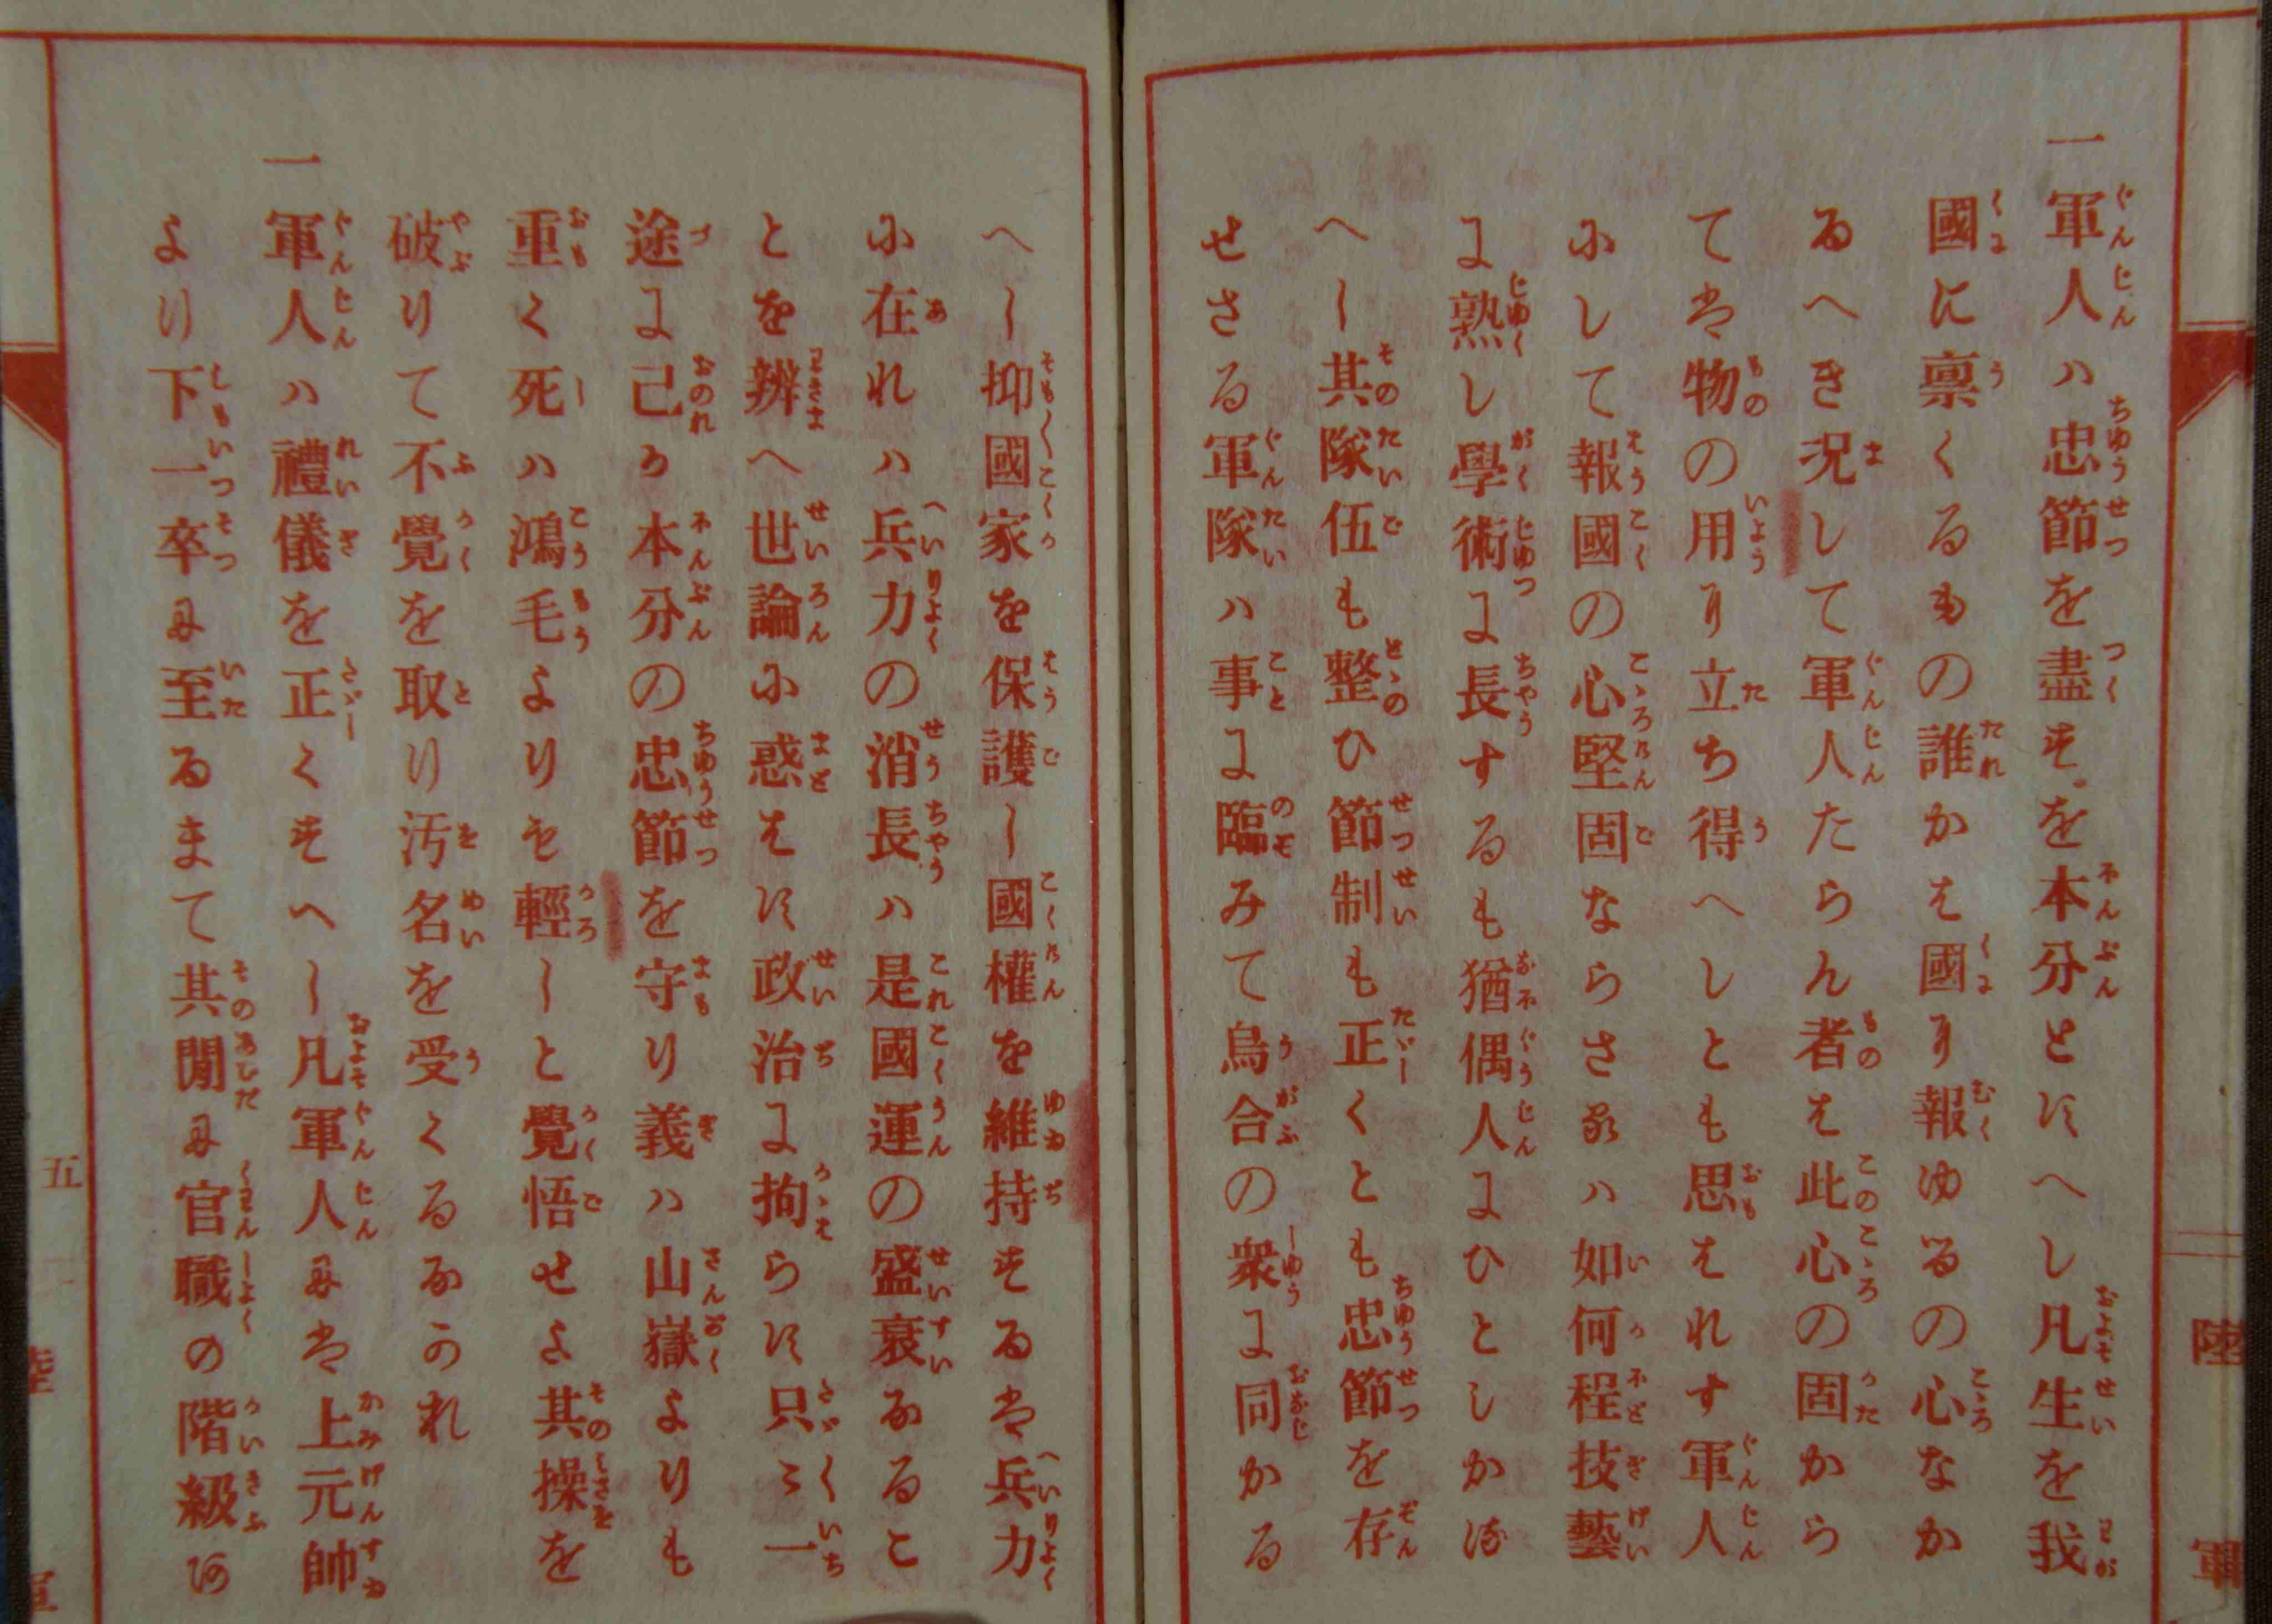 陸軍
一 軍人ハ忠節を盡すを本分とすへし凡生を我
國に禀くるもの誰かは國に報ゆるの心なか
るへき況して軍人たらん者は此心の固から
ては物の用に立ち得へしとも思はれす軍人
にして報國の心堅固ならさるハ如何程技藝
に熟し學術に長するも猶偶人にひとしかる
へし其隊伍も整ひ節制も正くとも忠節を存
せさる軍隊ハ事に臨みて烏合の衆に同かる
へし抑國家を保護し國權を維持するは兵力
に在れハ兵力の消長ハ是國運の盛衰なるこ
とを辨へ世論に惑はす政治に拘らす只〻一
途に己か本分の忠節を守り義ハ山嶽よりも
重く死ハ鴻毛よりも輕しと覺悟せよ其操を
破りて不覺を取り汚名を受くるなかれ
一 軍人ハ禮儀を正くすへし凡軍人には上元帥
より下一卒に至るまて其閒に官職の階級あ
五